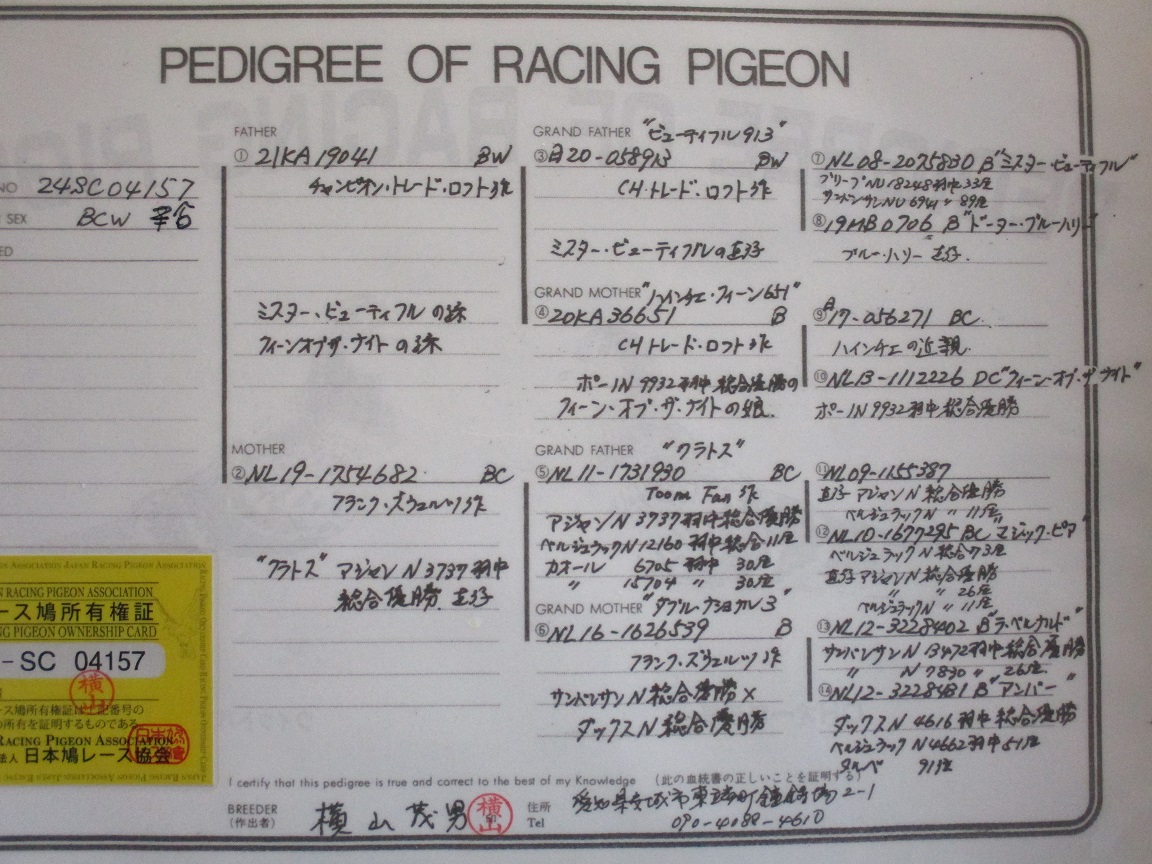 PEDIGREE OF RACING PIGEON
NO 24SC04157
SEX BCW
ED
FATHER
① 21KA19041 BW
チャンピオン・トレード・ロフト作
ミスター・ビューティフルの孫
フィーンオブザ・ナイトの孫
MOTHER
② NL19-1754682 BC
フランク・ズウェルツ作
"クラトス" アジャンN3737羽中
総合優勝 直仔
GRAND FATHER "ビューティフル913"
③日20-058913 BW
CH・トレード・ロフト作
ミスター・ビューティフルの直仔
GRAND MOTHER "ハインチェ・フィーン651"
④20KA36651 B
CHトレード・ロフト作
ポーIN 9932羽中総合優勝の
フィーン・オブ・ザ・ナイトの娘
GRAND FATHER "クラトス"
⑤NL11-1731930 BC
Toom Fan作
アジャンN 3737羽中総合優勝
ベルジュラックN12160羽中総合11位
カオール 6705羽中 30位
〃 15704 〃 30位
GRAND MOTHER "ダブル・ナショナル3"
⑥NL16-1626539 B
フランク・ズウェルツ作
サンバンサンN総合優勝×
ダックスN総合優勝
⑦NL08-2075830 B"ミスター・ビューティフル"
ブリーブNU18248羽中33位
サンバンサンNU6941 〃 89位
⑧19MB0706 B"ドーター・ブルーハリー"
ブルー・ハリー直仔.
⑨日17-056271 BC
ハインチェの近親.
⑩NL13-1112226 DC"フィーン・オブ・ザ・ナイト"
ポーIN9932羽中総合優勝
⑪NL09-1155387
直仔アジャンN総合優勝
ベルジュラックN 〃 11位
⑫NL10-1677295 BC"マジック・ピア"
ベルジュラックN総合73位
直仔アジャンN総合優勝
〃 〃 26位
ベルジュラックN 〃 11位
⑬NL12-3228402 B"ラ・ベルナルド"
サンバンサンN13472羽中総合優勝
〃 N7830 〃 26位
⑭NL12-3228481 B"アンバー"
ダックスN4616羽中総合優勝
ベルジュラックN4662羽中51位
タルベ 91位
ASSOCIATION JAPAN RACING PIGEON ASSOCIATION
N RACING PIGEON ASSOCIATION
ース鳩所有権証
NG PIGEON OWNERSHIP CARD
-SC 04157
横山
ース鳩所有権証は上記番号の
の所有を証明するものである
RACING PIGEON ASSOCIATION
法人 日本鳩レース協会
I certify that this pedigree is true and correct to the best of my Knowledge (此の血統書の正しいことを証明する)
BREEDER
(作出者) 横山茂男 横山 住所
Tel
愛知県安城市東端町鐘鋳場2-1
090-4088-4610